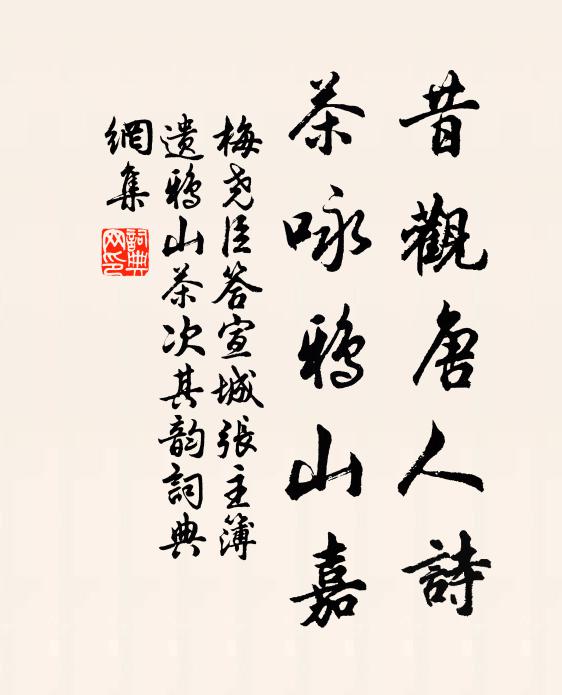 昔觀唐人詩
茶咏鴉山嘉
梅尧臣答宣城張主簿
遺鴉山茶次其韵詞典
網集
詞典
网印